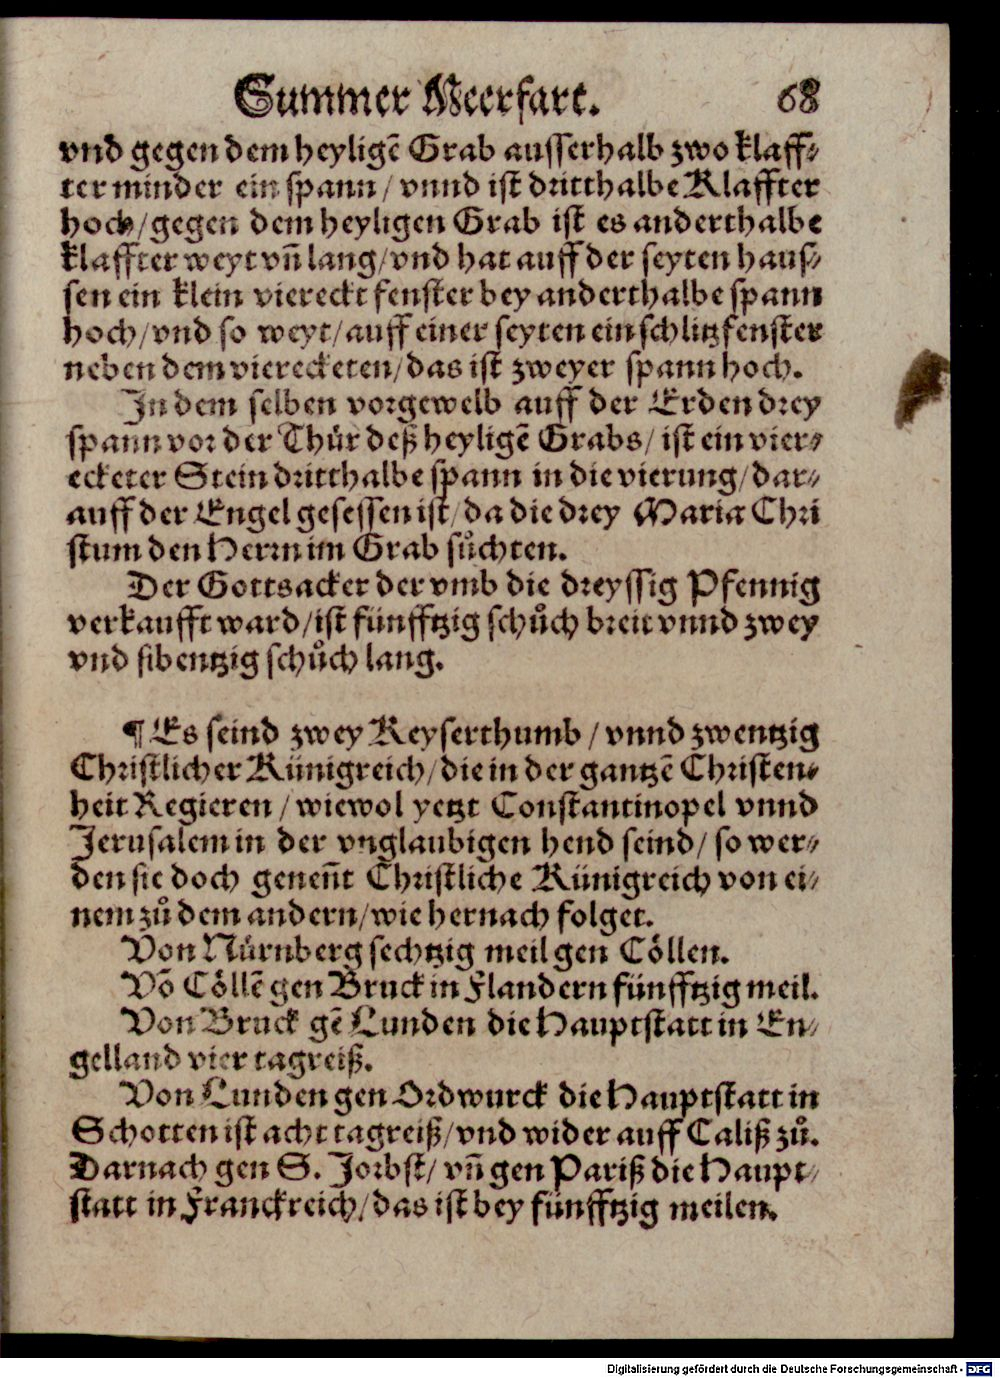 Summer Meerfart. 68
vnd gegen dem heyligẽ Grab ausserhalb zwo klaff⸗
ter minder ein spann / vnnd ist dritthalbe Klaffter
hoch/gegen dem heyligen Grab ist es anderthalbe
klaffter weyt vñ lang/vnd hat auff der seyten haus⸗
sen ein klein viereckt fenster bey anderthalbe spann
hoch/vnd so weyt/auff einer seyten ein schlitzfenster
neben dem vierecketen/das ist zweyer spann hoch.
In dem selben vorgewelb auff der Erden drey
spann vor der Thür deß heyligẽ Grabs/ ist ein vier⸗
ecketer Stein dritthalbe spann in die vierung/dar⸗
auff der Engel gesessen ist/da die drey Maria Chri
stum den Herrn im Grab sůchten.
Der Gottsacker der vmb die dreyssig Pfennig
verkaufft ward/ist fünfftzig schůch breit vnnd zwey
vnd sibentzig schůch lang.
¶ Es seind zwey Keyserthumb / vnnd zwentzig
Christlicher Künigreich/die in der gantzẽ Christen⸗
heit Regieren / wiewol yetzt Constantinopel vnnd
Jerusalem in der vnglaubigen hend seind/ so wer⸗
den sie doch geneñt Christliche Künigreich von ei⸗
nem zů dem andern/wie hernach folget.
Von Nürnberg sechtzig meil gen Cöllen.
Võ Cöllẽ gen Bruck in Flandern fünfftzig meil.
Von Bruck gẽ Lunden die Hauptstatt in En⸗
gelland vier tagreiß.
Von Lunden gen Ordwurck die Hauptstatt in
Schotten ist acht tagreiß/vnd wider auff Caliß zů.
Darnach gen S. Jorbst/ vñ gen Pariß die Haupt⸗
statt in Franckreich/das ist bey fünfftzig meilen.
Digitalisierung gefördert durch die Deutsche Forschungsgemeinschaft - DFG